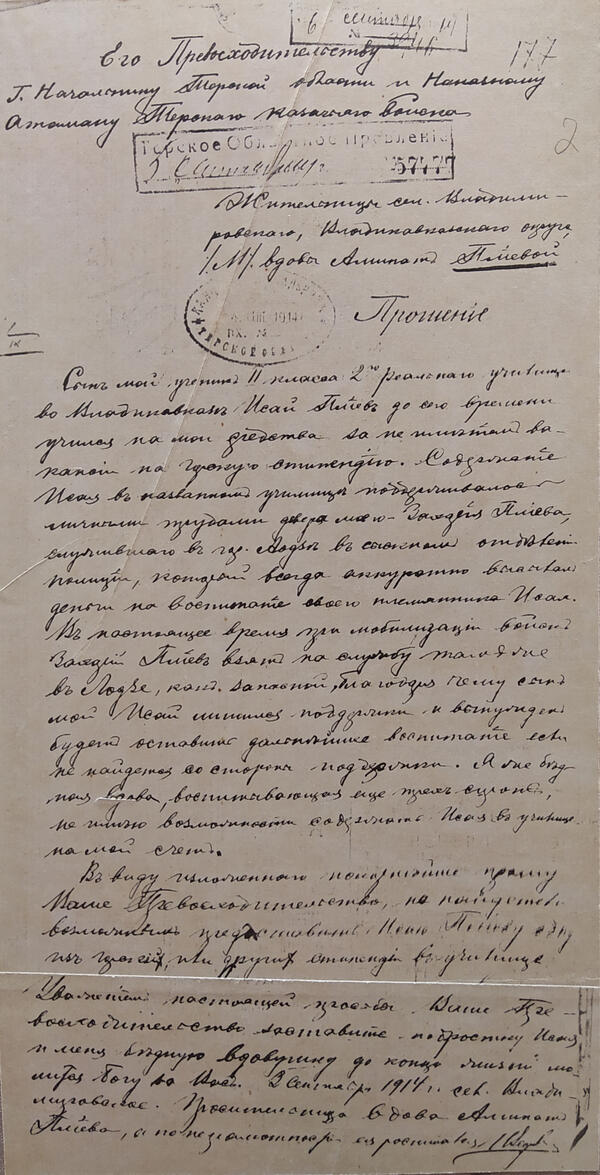 6 сентября 19
№ 3946
177
Его Превосходительству
Г. Начальнику Терской области и Наказному
Атаману Терскаго казачьяго войска
2
Терское Областное Правленіе
3 Сентября 57777
Жительницы сел. Владими-
ровскаго, Владикавказскаго округа,
вдовы Аминатъ Пліевой
1914
Прошеніе
Сынъ мой ученикъ II класса 2го реальнаго училища
во Владикавказѣ Исай Пліевъ до сего времени
учился на мои средства за не имѣніемъ ва-
кансіи на горскую стипендію. Содержаніе
Исая въ названномъ училищѣ поддерживалось
личными трудами деверя моего Заадія Пліева,
служившаго въ гор. Лодзь въ сыскномъ отдѣленіи
полиціи, который всегда аккуратно высылалъ
деньги на воспитаніе своего племянника Исая.
Въ настоящее время при мобилизаціи войскъ
Пліевъ взятъ на службу тамъ же
въ Лодзѣ, какъ запасный, благодаря чему сынъ
мой Исай лишился поддержки и вынужденъ
будетъ оставить дальнѣйшее воспитаніе если
не найдется со стороны поддержки. Я же бѣд-
ная вдова, воспитывающая еще трехъ сиротъ,
не имѣю возможности содержать Исая въ училищѣ
на мой счетъ.
Въ виду изложеннаго покорнѣйше прошу
Ваше Превосходительство, не найдете ли
возможнымъ предоставить Исаю Пліеву одну
изъ горскихъ или другихъ стипендій въ училищѣ
Уваженіемъ настоящей просьбы Ваше Пре-
восходительство заставите подростку Исая
и меня бѣдную вдовушку до конца жизни мо-
литься Богу за Васъ. 3 Сентября 1914 г. сел. Влади-
міровское. Просительница вдова Аминатъ
Пліева, а по неграмотности ея росписался